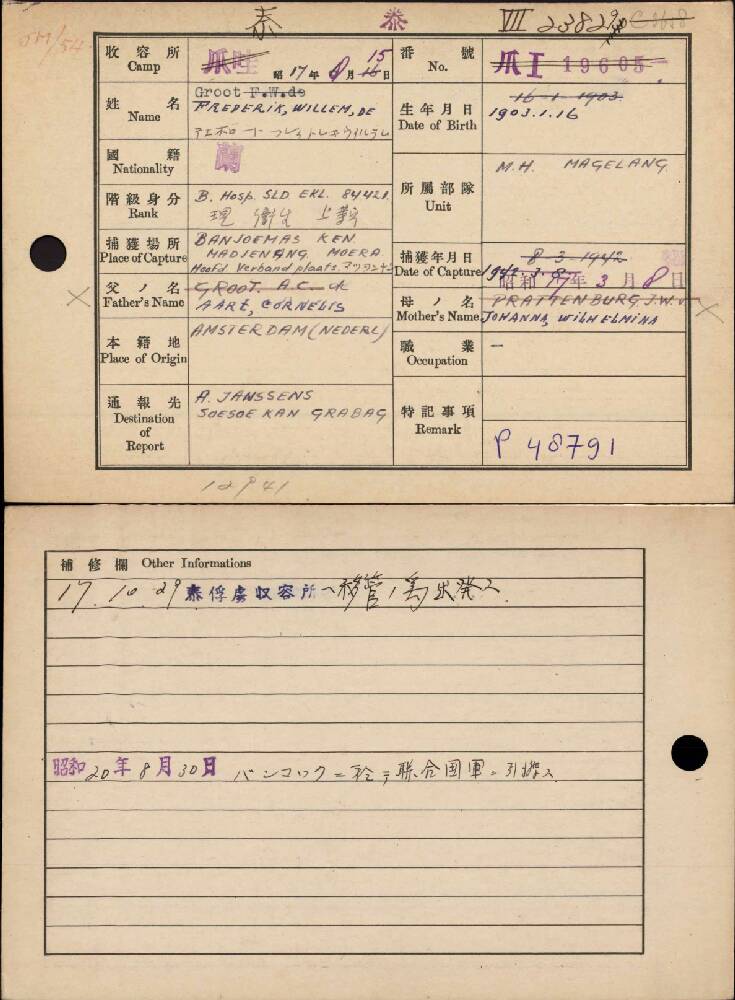 泰 泰 VII 23829
JM/54
收容所 Camp 爪哇 昭17年8月15日
番號 No. 爪I 19605
姓名 Name Groot F.W.de
FREDERIK, WILLEM, DE
生年月日 Date of Birth 16-1-1903
1903.1.16
國籍 Nationality 蘭
階級身分 Rank B. Hosp. SLD EKL. 84421
所屬部隊 Unit M.H. MAGELANG
捕獲場所 Place of Capture BANJOEMAS KEN.
MADJENANG MOERA
Hoofd Verband plaats.
捕獲年月日 Date of Capture 8-3-1942
1942.3.8 昭和17年3月8日
父ノ名 Father's Name GROOT. A.C. de
AART, CORNELIS
母ノ名 Mother's Name PRATTENBURG. J.W. v
JOHANNA, WILHELMINA
本籍地 Place of Origin AMSTERDAM (NEDERL)
職業 Occupation —
通報先 Destination of Report A. JANSSENS
SOESOEKAN GRABAG
特記事項 Remark P 48791
補修欄 Other Informations
17.10.29 泰俘虜収容所ヘ移管ノ為出発ス
昭和20年8月30日 バンコックニ於テ聯合国軍ニ引渡ス